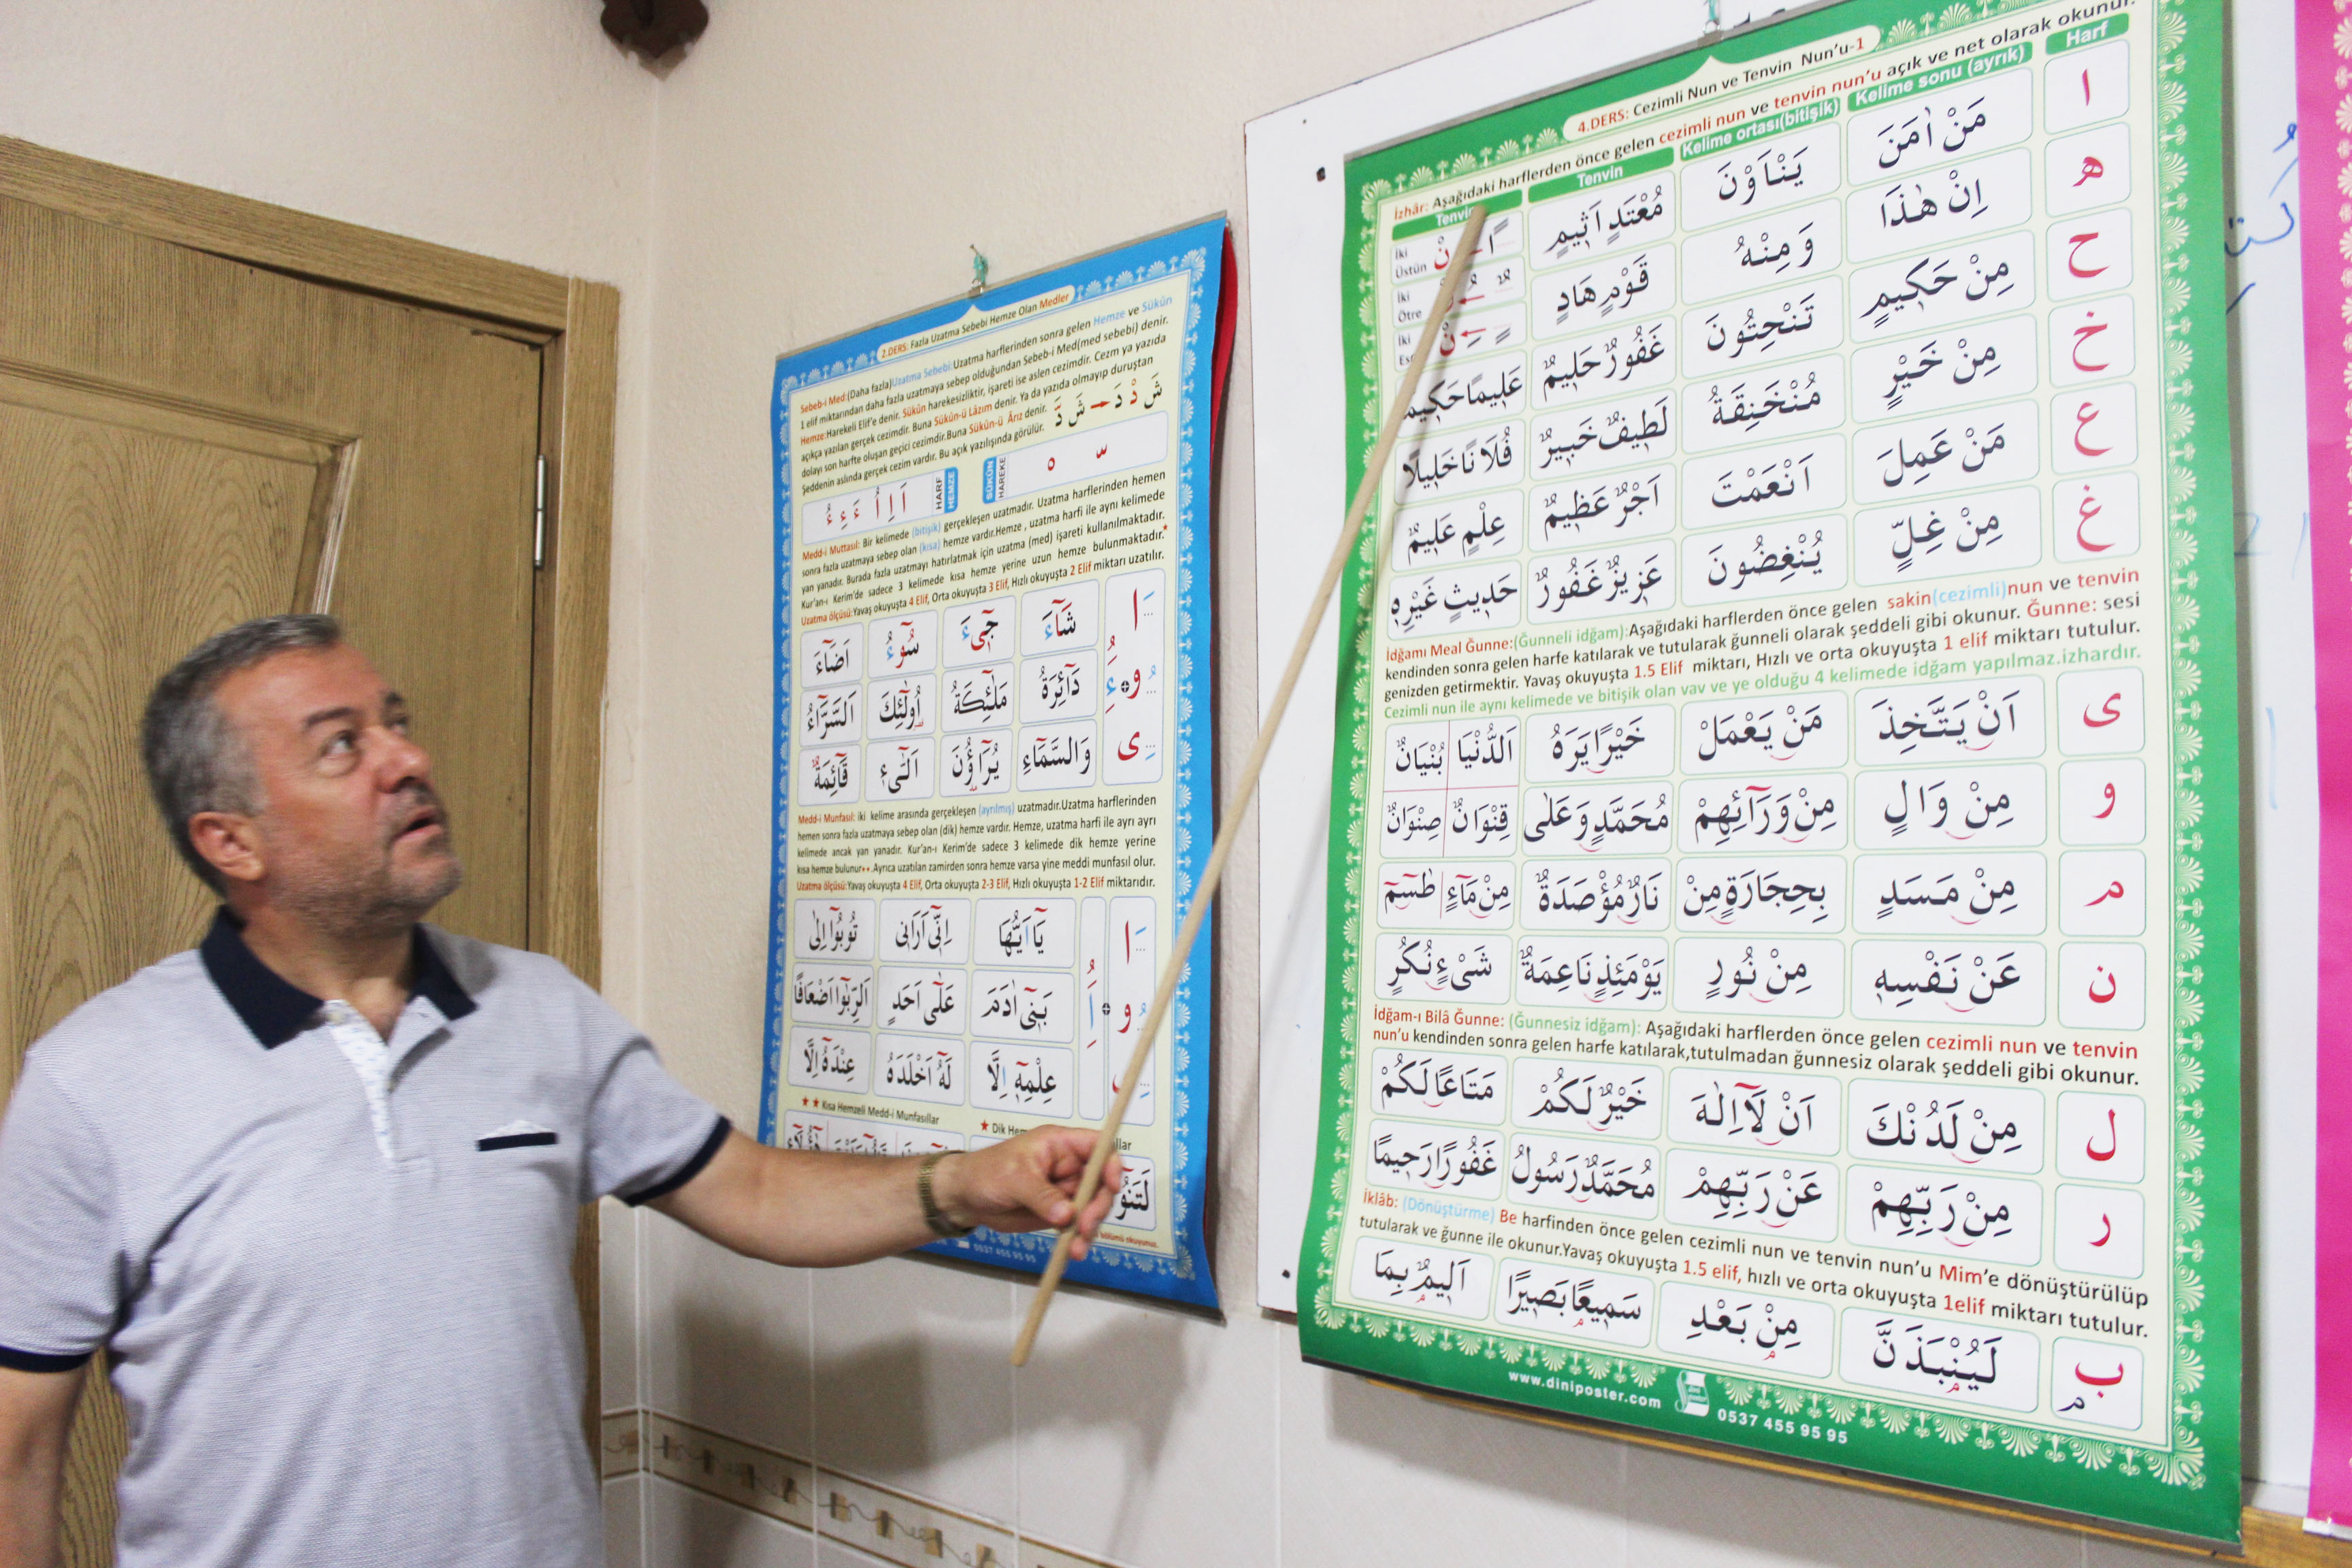 2.DERS: Fazla Uzatma Sebebi Hemze Olan Medler
Sebeb-i Med:(Daha fazla)Uzatma Sebebi:Uzatma harflerinden sonra gelen Hemze ve Sükûn
1 elif miktarından daha fazla uzatmaya sebep olduğundan Sebeb-i Med(med sebebi) denir.
Hemze:Harekeli Elif'e denir. Sükûn harekesizliktir, işareti ise aslen cezimdir. Cezm ya yazıda
açıkça yazılan gerçek cezimdir. Buna Sükûn-ü Lâzım denir. Ya da yazıda olmayıp duruştan
dolayı son harfte oluşan geçici cezimdir.Buna Sükûn-ü Ârız denir.
Şeddenin aslında gerçek cezim vardır. Bu açık yazılışında görülür.
HARF
HEMZE
SÜKÛN
HAREKE
Medd-i Muttasıl: Bir kelimede (bitişik) gerçekleşen uzatmadır. Uzatma harflerinden hemen
sonra fazla uzatmaya sebep olan (kısa) hemze vardır.Hemze , uzatma harfi ile aynı kelimede
yan yanadır. Burada fazla uzatmayı hatırlatmak için uzatma (med) işareti kullanılmaktadır.
Kur'an-ı Kerim'de sadece 3 kelimede kısa hemze yerine uzun hemze bulunmaktadır.*
Uzatma ölçüsü:Yavaş okuyuşta 4 Elif, Orta okuyuşta 3 Elif, Hızlı okuyuşta 2 Elif miktarı uzatılır.
شَٓاءَ جٖٓىءَ سُٓوءُ اَضَٓاءَ
دَٓائِرَةُ مَلٰٓئِكَةُ اُولٰٓئِكَ اَلسَّرَّٓاءُ
وَالسَّمَٓاءِ يُرَٓاؤُنَ اَلّٰٓىءِ قَٓائِمَةٌ
Medd-i Munfasıl: iki kelime arasında gerçekleşen (ayrılmış) uzatmadır.Uzatma harflerinden
hemen sonra fazla uzatmaya sebep olan (dik) hemze vardır. Hemze, uzatma harfi ile ayrı ayrı
kelimede ancak yan yanadır. Kur'an-ı Kerim'de sadece 3 kelimede dik hemze yerine
kısa hemze bulunur**.Ayrıca uzatılan zamirden sonra hemze varsa yine meddi munfasıl olur.
Uzatma ölçüsü:Yavaş okuyuşta 4 Elif, Orta okuyuşta 2-3 Elif, Hızlı okuyuşta 1-2 Elif miktarıdır.
يَٓا اَيُّهَا اِنّٖٓى اَرَانٖى تُوبُٓوا اِلٰى
بَنٖٓى اٰدَمَ عَلٰٓى اَحَدٍ اَلرِّبٰٓوا اَضْعَافًا
عِلْمِهٖٓ اِلَّا لَهُٓ اَخْلَدَهُ عِنْدَهُٓ اِلَّا
★ ★ Kısa Hemzeli Medd-i Munfasıllar
★ Dik
0537 455 95 95
4.DERS: Cezimli Nun ve Tenvin Nun'u-1
İzhâr: Aşağıdaki harflerden önce gelen cezimli nun ve tenvin nun'u açık ve net olarak okunur.
Tenvin Tenvin Kelime ortası(bitişik) Kelime sonu (ayrık) Harf
İki
Üstün
İki
Ötre
İki
ا مَنْ اٰمَنَ يَنْاَوْنَ مُعْتَدٍ اَثٖيمٍ
ه اِنْ هٰذَا وَ مِنْهُ قَوْمٍ هَادٍ
ح مِنْ حَكٖيمٍ تَنْحِتُونَ غَفُورٌ حَلٖيمٌ عَلٖيمًا حَكٖيمًا
خ مِنْ خَيْرٍ مُنْخَنِقَةُ لَطٖيفٌ خَبٖيرٌ فُلَانًا خَلٖيلًا
ع مَنْ عَمِلَ اَنْعَمْتَ اَجْرٌ عَظٖيمٌ عِلْمٍ عَلٖيمٌ
غ مِنْ غِلٍّ يُنْغِضُونَ عَزٖيزٌ غَفُورٌ حَدٖيثٍ غَيْرِهٖ
İdğamı Meal Ğunne:(Ğunneli idğam):Aşağıdaki harflerden önce gelen sakin(cezimli)nun ve tenvin
kendinden sonra gelen harfe katılarak ve tutularak ğunneli olarak şeddeli gibi okunur. Ğunne: sesi
genizden getirmektir. Yavaş okuyuşta 1.5 Elif miktarı, Hızlı ve orta okuyuşta 1 elif miktarı tutulur.
Cezimli nun ile aynı kelimede ve bitişik olan vav ve ye olduğu 4 kelimede idğam yapılmaz.izhardır.
ى اَنْ يَتَّخِذَ مَنْ يَعْمَلْ خَيْرًا يَرَهُ اَلدُّنْيَا بُنْيَانٌ
و مِنْ وَالٍ مِنْ وَرَٓائِهِمْ مُحَمَّدٍ وَعَلٰى قِنْوَانٌ صِنْوَانٌ
م مِنْ مَسَدٍ بِحِجَارَةٍ مِنْ نَارٌ مُؤْصَدَةٌ مِنْ مَٓاءٍ طٰسٓمٓ
ن عَنْ نَفْسِهٖ مِنْ نُورٍ يَوْمَئِذٍ نَاعِمَةٌ شَىْءٍ نُكُرٍ
İdğam-ı Bilâ Ğunne: (Ğunnesiz idğam): Aşağıdaki harflerden önce gelen cezimli nun ve tenvin
nun'u kendinden sonra gelen harfe katılarak,tutulmadan ğunnesiz olarak şeddeli gibi okunur.
ل مِنْ لَدُنْكَ اَنْ لَٓا اِلٰهَ خَيْرٌ لَكُمْ مَتَاعًا لَكُمْ
ر مِنْ رَبِّهِمْ عَنْ رَبِّهِمْ مُحَمَّدٌ رَسُولُ غَفُورًا رَحٖيمًا
İklâb: (Dönüştürme) Be harfinden önce gelen cezimli nun ve tenvin nun'u Mim'e dönüştürülüp
tutularak ve ğunne ile okunur.Yavaş okuyuşta 1.5 elif, hızlı ve orta okuyuşta 1elif miktarı tutulur.
ب لَيُنْبَذَنَّ مِنْ بَعْدِ سَمٖيعًا بَصٖيرًا اَلٖيمٌ بِمَا
www.diniposter.com
0537 455 95 95